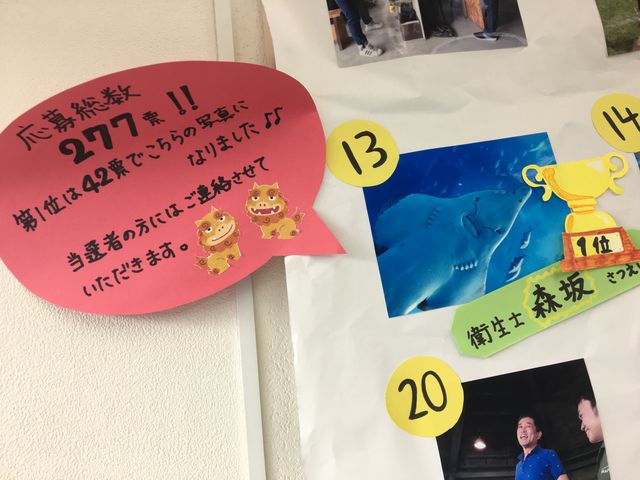 応募総数
277票!!
第1位は42票でこちらの写真に
なりました♪♪
当選者の方にはご連絡させて
いただきます。
13
14
1位
衛生士 森坂 さつえ
20